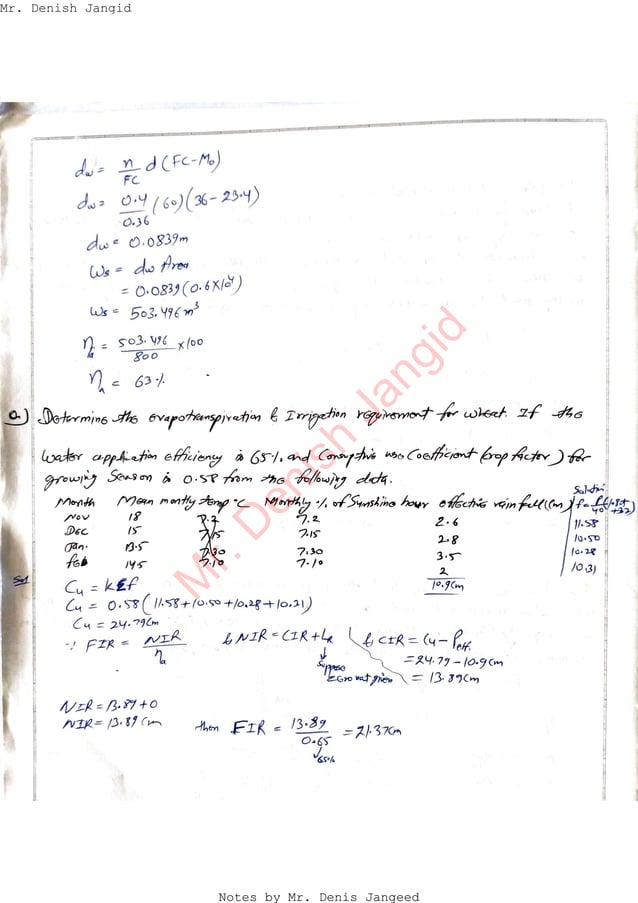 Mr. Denish Jangid
dw = n/FC d (FC-Mo)
dw = 0.4/0.36 (60)(36-23.4)
dw = 0.0839m
Ws = dw Area
= 0.0839(0.6X10⁴)
Ws = 503.496m³
ηa = 503.496/800 x100
ηa = 63%.
Q) Determine the evapotranspiration & Irrigation requirement for wheat. If the
water application efficiency is 65%. and Consuptive use Coefficient (crop factor) for
growing Season is 0.58 from the following data.
Month Mean montly temp °C Monthly %. of Sunshine hour effective rainfall (cm)
Nov 18 7.2 7.2 2.6 11.58
Dec 15 7.15 7.15 2.8 10.50
Jan. 13.5 7.30 7.30 3.5 10.28
feb 14.5 7.10 7.10 2 10.31
10.9cm
Sol
Cu = kΣf
Cu = 0.58(11.58+10.50+10.28+10.31)
Cu = 24.79cm
∵ FIR = NIR/ηa & NIR = CIR+LR & CIR = Cu-Peff.
= 24.79-10.9cm
= 13.89cm
Suppose
Zero not given
NIR = 13.89+0
NIR = 13.89cm
then FIR = 13.89/0.65 = 21.37cm
65%
Mr. Denish Jangid
Notes by Mr. Denis Jangeed